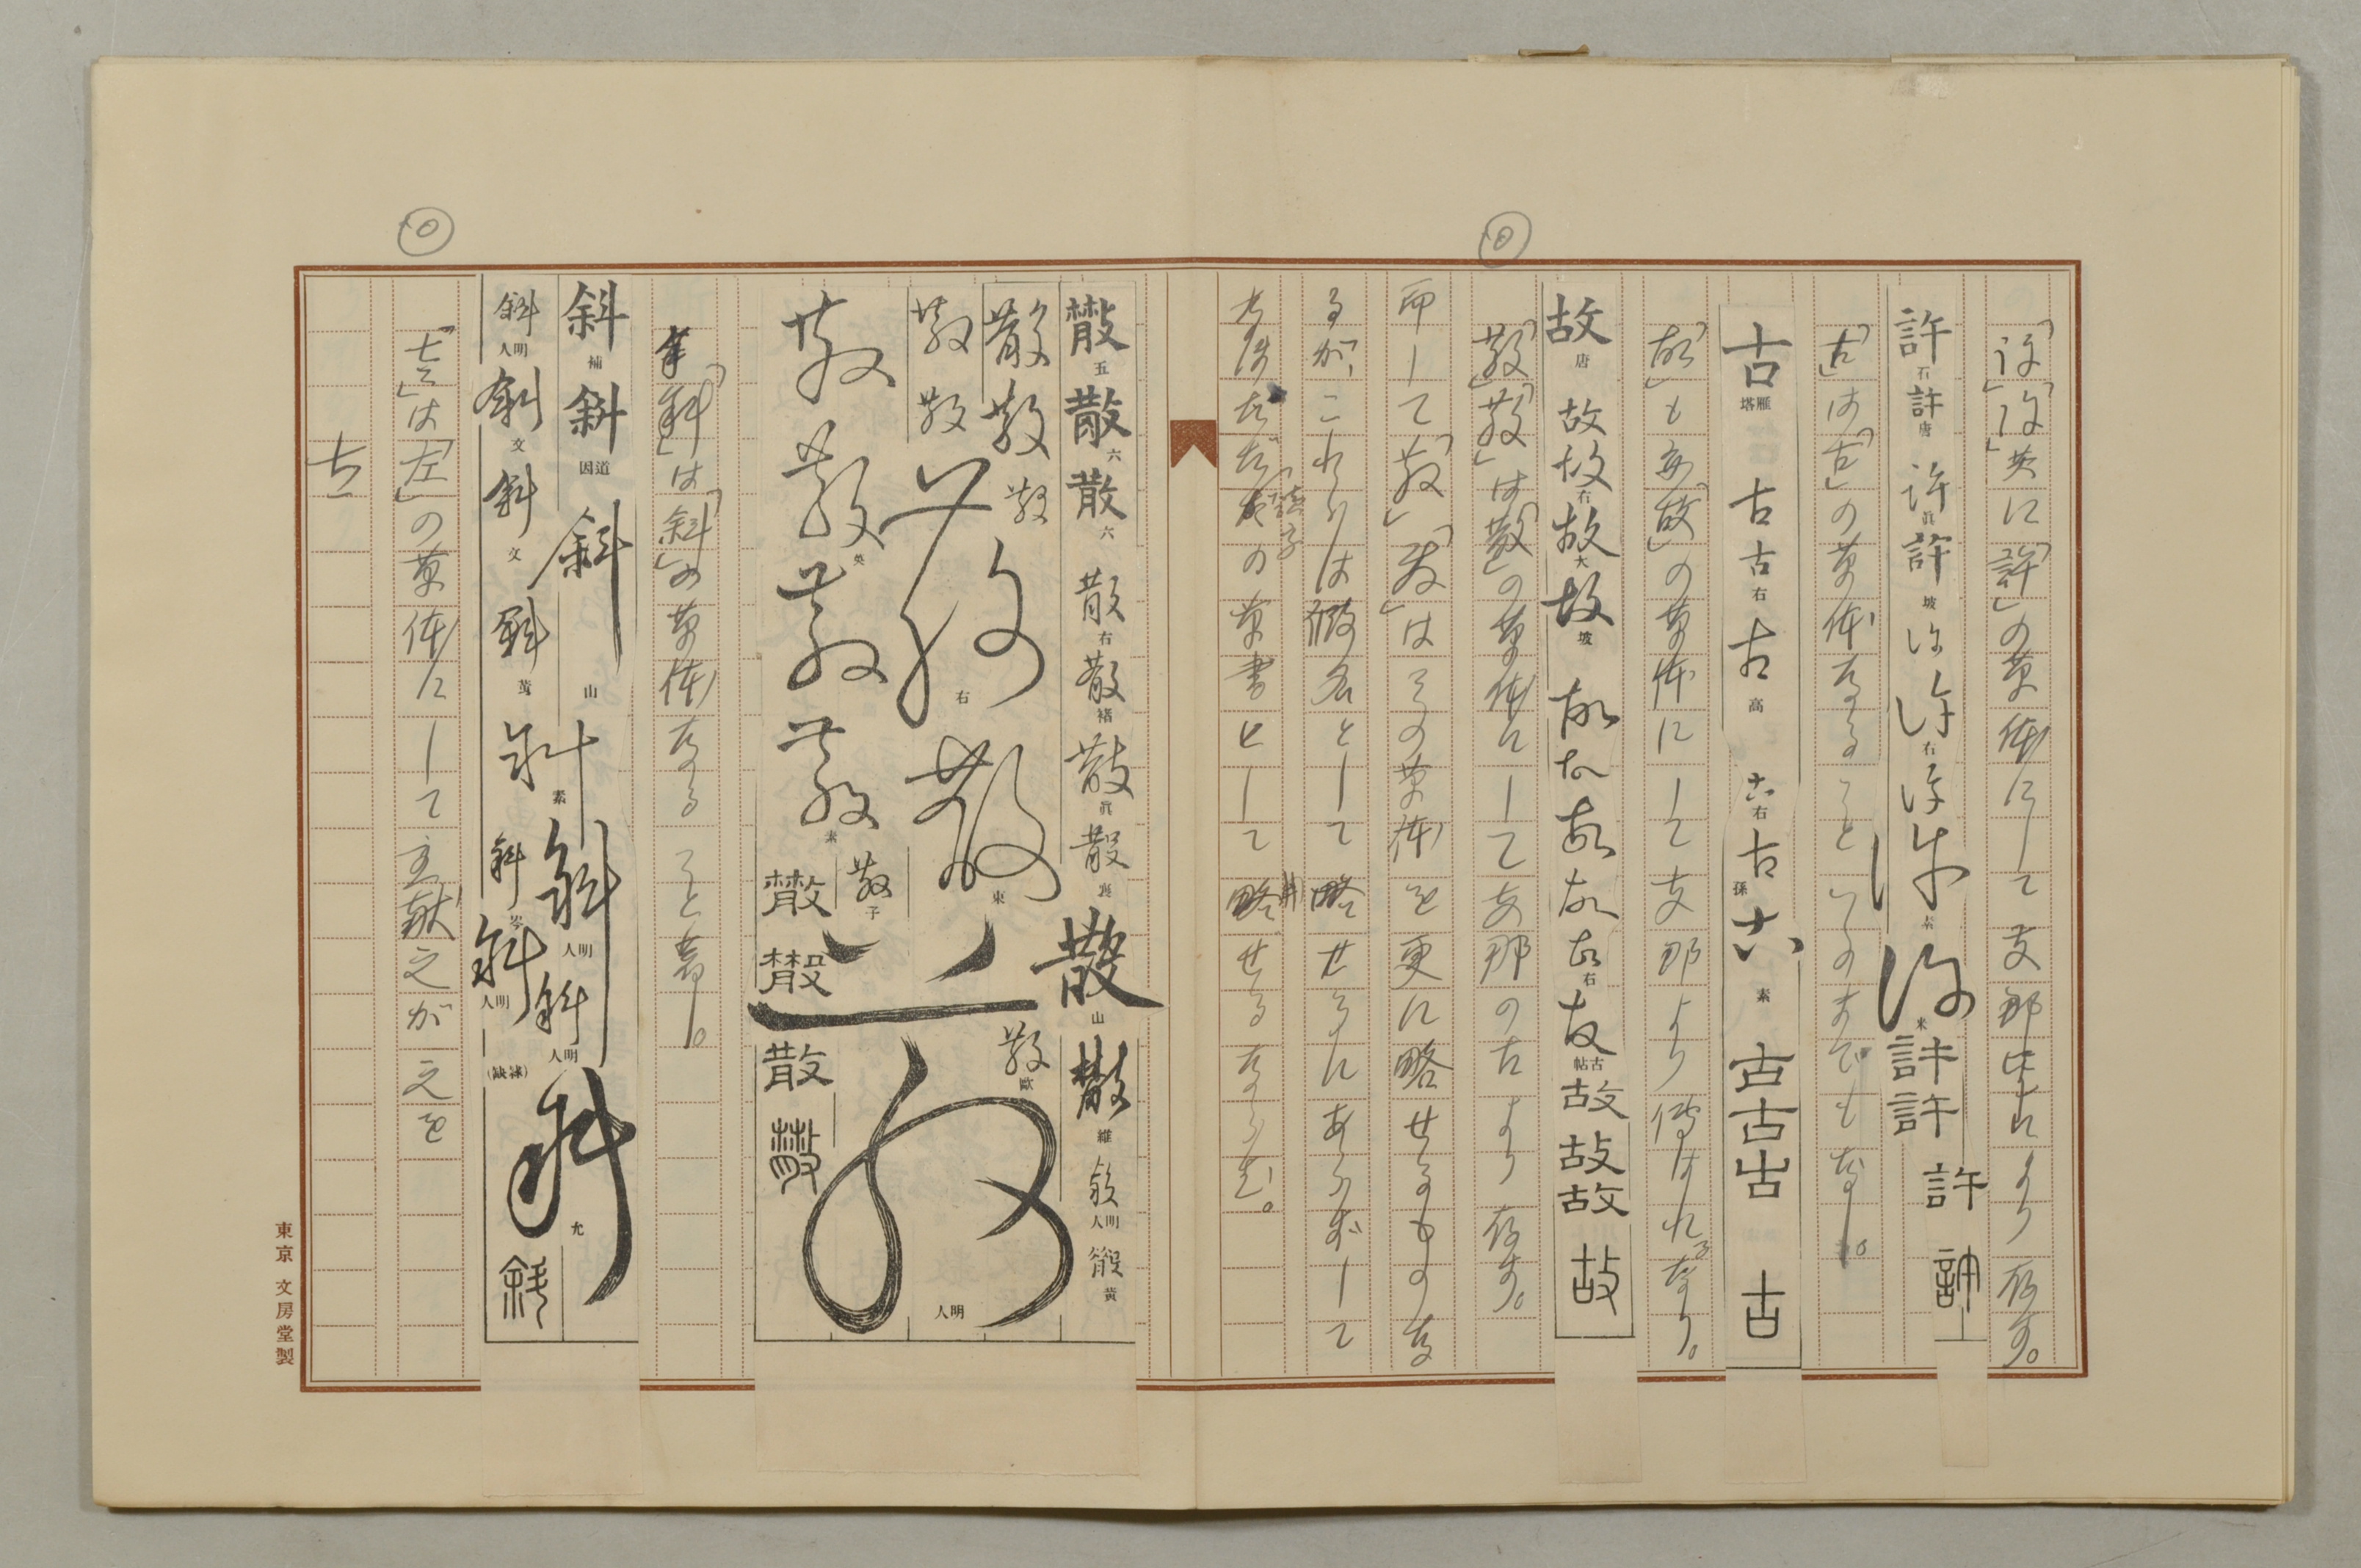 「许」「许」共に「許」の草体にして支那により存す。
許 石 許 唐 許 眞 許 坡 许 许 右 许 许 素 许 米 許 許 許 許
「古」は「古」の草体なること いふまでもなし。
古 雁塔 古 古 右 古 高 古 右 古 孫 古 素 古 古 古 古
「故」も亦「故」の草体にして支那より傳はれるなり。
故 唐 故 故 右 故 大 故 坡 故 故 故 故 故 右 故 古帖 故 故 故 故
「散」「散」は「散」の草体にして支那の古より存す。
而して「散」「散」はその草体を更に略せるものな
るが、これらは假名として略せるにあらずして
の草書として略せるならむ。
散 五 散 六 散 六 散 右 散 褚 散 眞 散 襄 散 山 散 維 散 明人 散 黃
散 散 散
散 散 散 右 散 東 散 歐 散 明人
散 散 英 散 散 素 散 子 散 散 散 散
「斜」は「斜」の草体なること著し。
斜 補 斜 道因 斜 山 斜 素 斜 明人 斜 明人 斜 尤
斜 明人 斜 文 斜 文 斜 黃 斜 斜 明人 (隷缺) 斜
「左」は「左」の草体にして王献之が之を
左
東京 文房堂製